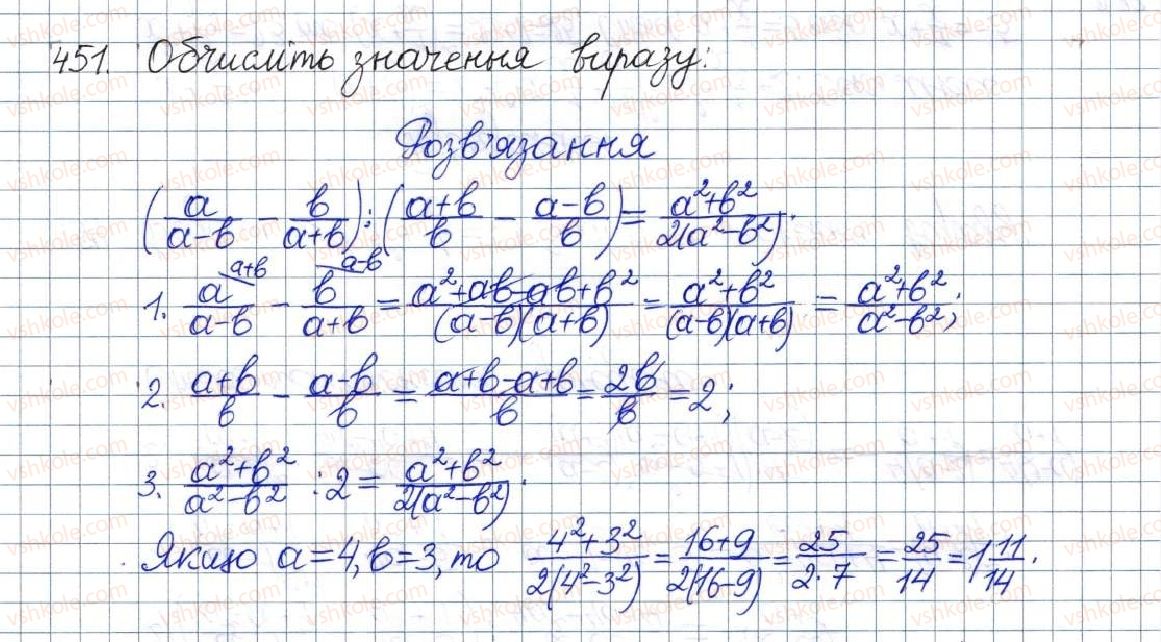 451. Обчисліть значення виразу:
Розв'язання
(a/(a-b) - b/(a+b)) : ((a+b)/b - (a-b)/b) = (a²+b²)/(2(a²-b²)).
1. a/(a-b) (a+b) - b/(a+b) (a-b) = (a²+ab-ab+b²)/((a-b)(a+b)) = (a²+b²)/((a-b)(a+b)) = (a²+b²)/(a²-b²);
2. (a+b)/b - (a-b)/b = (a+b-a+b)/b = 2b/b = 2;
3. (a²+b²)/(a²-b²) : 2 = (a²+b²)/(2(a²-b²)).
Якщо a=4, b=3, то (4²+3²)/(2(4²-3²)) = (16+9)/(2(16-9)) = 25/(2·7) = 25/14 = 1 11/14.
vshkole.com